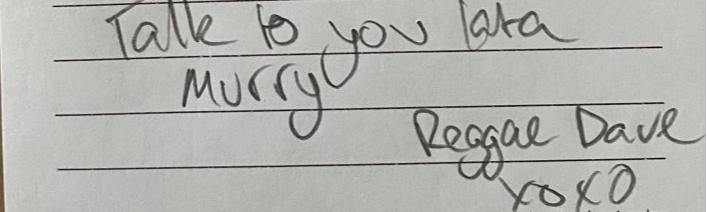 Talk to you lata
Murry
Reggae Dave
XOXO